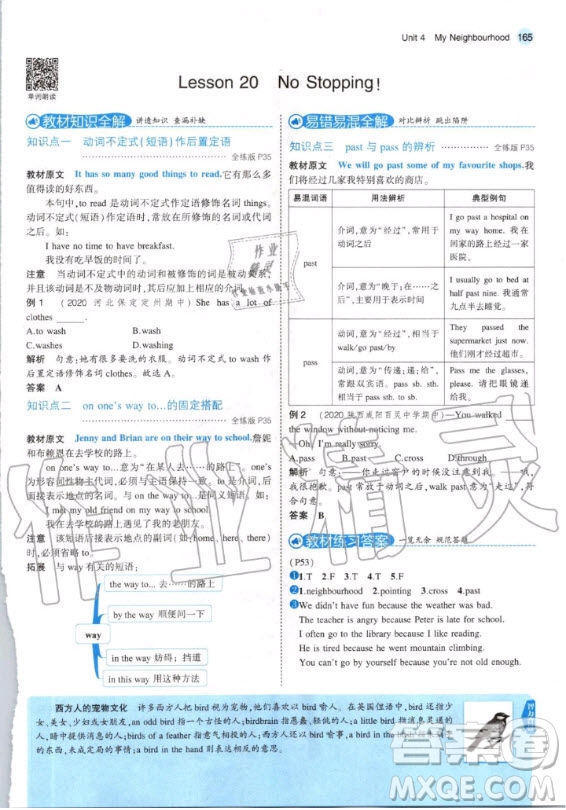 Unit 4 My Neighbourhood 165
单词朗读
Lesson 20 No Stopping!
教材知识全解 讲透知识 查漏补缺
知识点一 动词不定式(短语)作后置定语
全练版 P35
教材原文 It has so many good things to read.它有那么多
值得读的好东西。
本句中,to read 是动词不定式作后置定语修饰名词 things。
动词不定式(短语)作定语时,常放在所修饰的名词或代词
之后。如:
I have no time to have breakfast.
我没有吃早饭的时间了。
注意 当动词不定式中的动词和被修饰的词是被动关系,
并且该动词是不及物动词时,其后应加上相应的介词。
例 1 (2020 河北保定定州期中)She has a lot of
clothes
A.to wash B.wash
C.washes D.washing
解析 句意:她有很多要洗的衣服。动词不定式 to wash 作
后置定语修饰名词 clothes。故选 A。
答案 A
知识点二 on one's way to…的固定搭配
全练版 P35
教材原文 Jenny and Brian are on their way to school.詹妮
和布赖恩在去学校的路上。
on one's way to…意为“在某人去……的路上”。one's
为形容词性物主代词,必须与主语保持一致。to 为介词,后
面接表示地点的名词。与 on the way to…是同义短语。如:
I met my old friend on my way to school.
我在去学校的路上遇见了我的老朋友。
注意 该短语后接表示地点的副词(如:home, here, there)
时,应省略 to。
拓展 与 way 有关的短语:
way
the way to… 去……的路上
by the way 顺便问一下
in the way 妨碍;挡道
in this way 用这种方法
易错易混全解 对比辨析 跳出陷阱
知识点三 past 与 pass 的辨析
全练版 P35
教材原文 We will go past some of my favourite shops.我
们将经过几家我特别喜欢的商店。
易混词语 用法辨析 典型例句
past
介词,意为“经过”,常用于
动词之后
I go past a hospital on
my way home. 我在
回家的路上经过一家
医院。
介词,意为“晚于;在……之
后”,主要用于表示时间
I usually go to bed at
half past nine. 我通常
九点半去睡觉。
pass
动词,意为“经过”,相当于
walk/go past/by
They passed the
supermarket just now.
他们刚才经过超市。
动词,意为“传递;递;给”,
常跟双宾语。pass sb. sth.
相当于 pass sth. to sb.
Pass me the glasses,
please. 请把眼镜递
给我。
例 2 (2020 陕西咸阳百灵中学期中)—You walked
the window without noticing me.
—Oh! I'm really sorry.
A.pass B.past C.passed D.through
解析 句意:——你走过窗户的时候没有注意到我。——哦,
我很抱歉。past 常放于动词之后,walk past 意为“走过”,符
合句意。
答案 B
教材练习答案 一览无余 规范答题
(P53)
❶1.T 2.F 3.T 4.T 5.F
❷1.neighbourhood 2.pointing 3.cause 4.cross
❸We didn't have fun because the weather was bad.
The teacher is angry because Peter is late for school.
I often go to the library because I like reading.
He is interested in maths because it is fun.
I can't go by yourself because you're not old enough.
西方人的宠物文化 许多西方人把 bird 视为宠物,他们喜欢以 bird 喻人。在英国俚语中,bird 还指少
女、美女、少妇或女朋友,an odd bird 指一个古怪的人;birdbrain 指愚蠢、轻佻的人;a little bird 指消息灵通的
人,消息提供者;birds of a feather 意含贬义,指气质相投的人。西方人还以 bird 喻事,a bird in the bush 指未
来的、未成定局的事情;a bird in the hand 则表示到手的东西、有把握的意思。
作业
精灵
作业精灵
答案圈
MXQE.COM